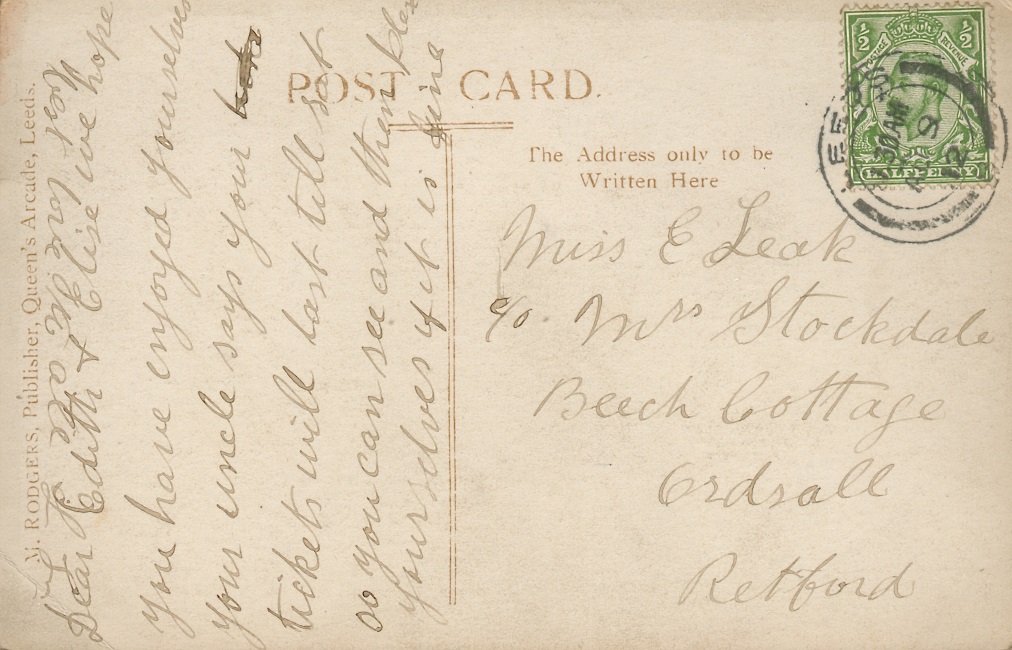 POST CARD.
The Address only to be
Written Here
½ ½
POSTAGE REVENUE
HALFPENNY
30AM
9
12
Miss E Leak
c/o. Mrs Stockdale
Beech Cottage
Ordsall
Retford
M. RODGERS, Publisher, Queen's Arcade, Leeds.
Dear Edith & Elsie we hope
you have enjoyed yourselves
your uncle says your
tickets will last till sat
so you can see and then
yourselves if it is fine